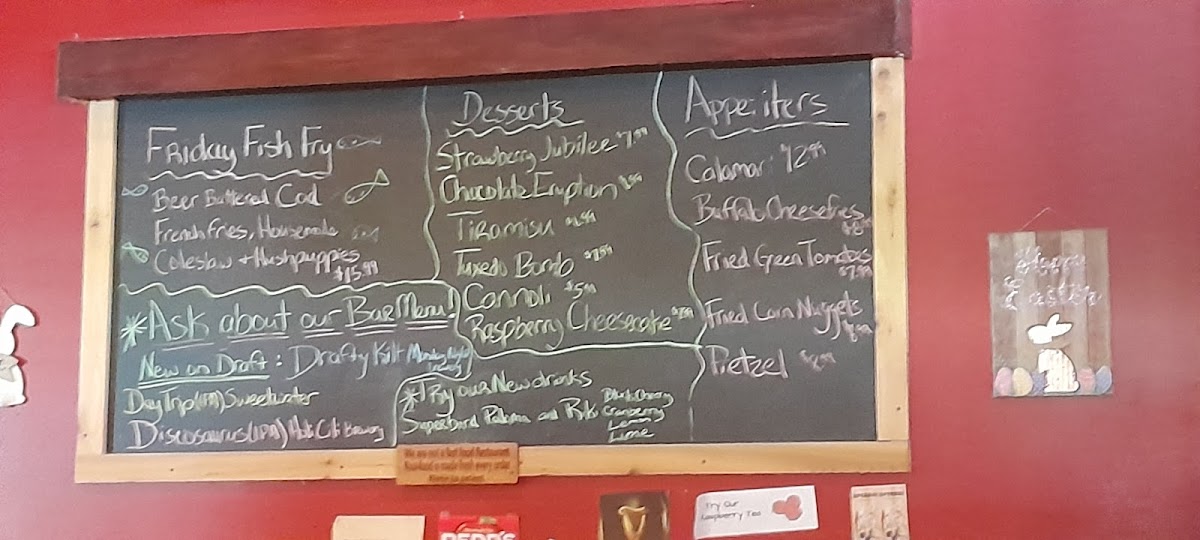 Friday Fish Fry
Beer Battered Cod
French fries, Housemade
Coleslaw + Hushpuppies
$15.99
*Ask about our Bar Menu!
New on Draft: Drafty Kilt Monday Night
Brewing
Day Trip (IPA) Sweetwater
Discosaurus (IPA) Brewing
Desserts
Strawberry Jubilee $7.99
Chocolate Eruption
Tiramisu
Tuxedo Bomb $7.99
Cannoli $5.99
Raspberry Cheesecake
*Try our New drinks
Superbird Paloma and
Black Cherry
Cranberry
Lemon
Lime
Appetiters
Calamari 12.99
Buffalo Cheesefries
Fried Green Tomatoes
$7.99
Fried Corn Nuggets
Pretzel
We are not a fast food Restaurant.
Your food is made fresh every order.
Happy
Easter
REDD'S
Try Our
Raspberry Tea